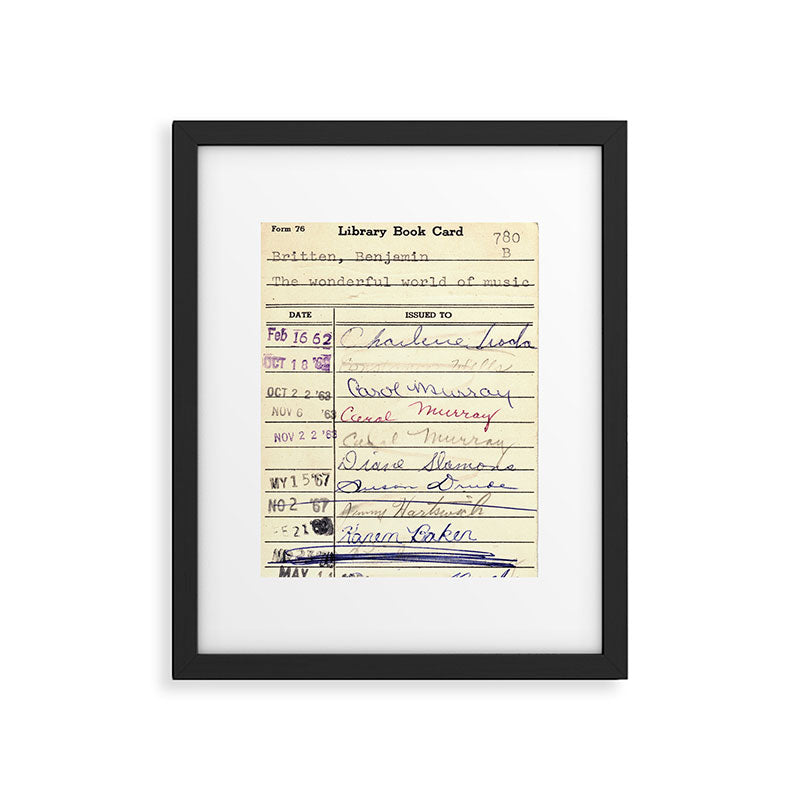 Form 76 Library Book Card 780
B
Britten, Benjamin
The wonderful world of music
DATE ISSUED TO
Feb 16 62 Charlene
OCT 18 '63
OCT 22 '63 Carol Murray
NOV 6 '63 Carol Murray
NOV 22 '63 Carol Murray
Diane Slemons
MY 15 '67 Susan Drude
NO 2 '67 Jimmy
FE 21 Karen Baker
MAY